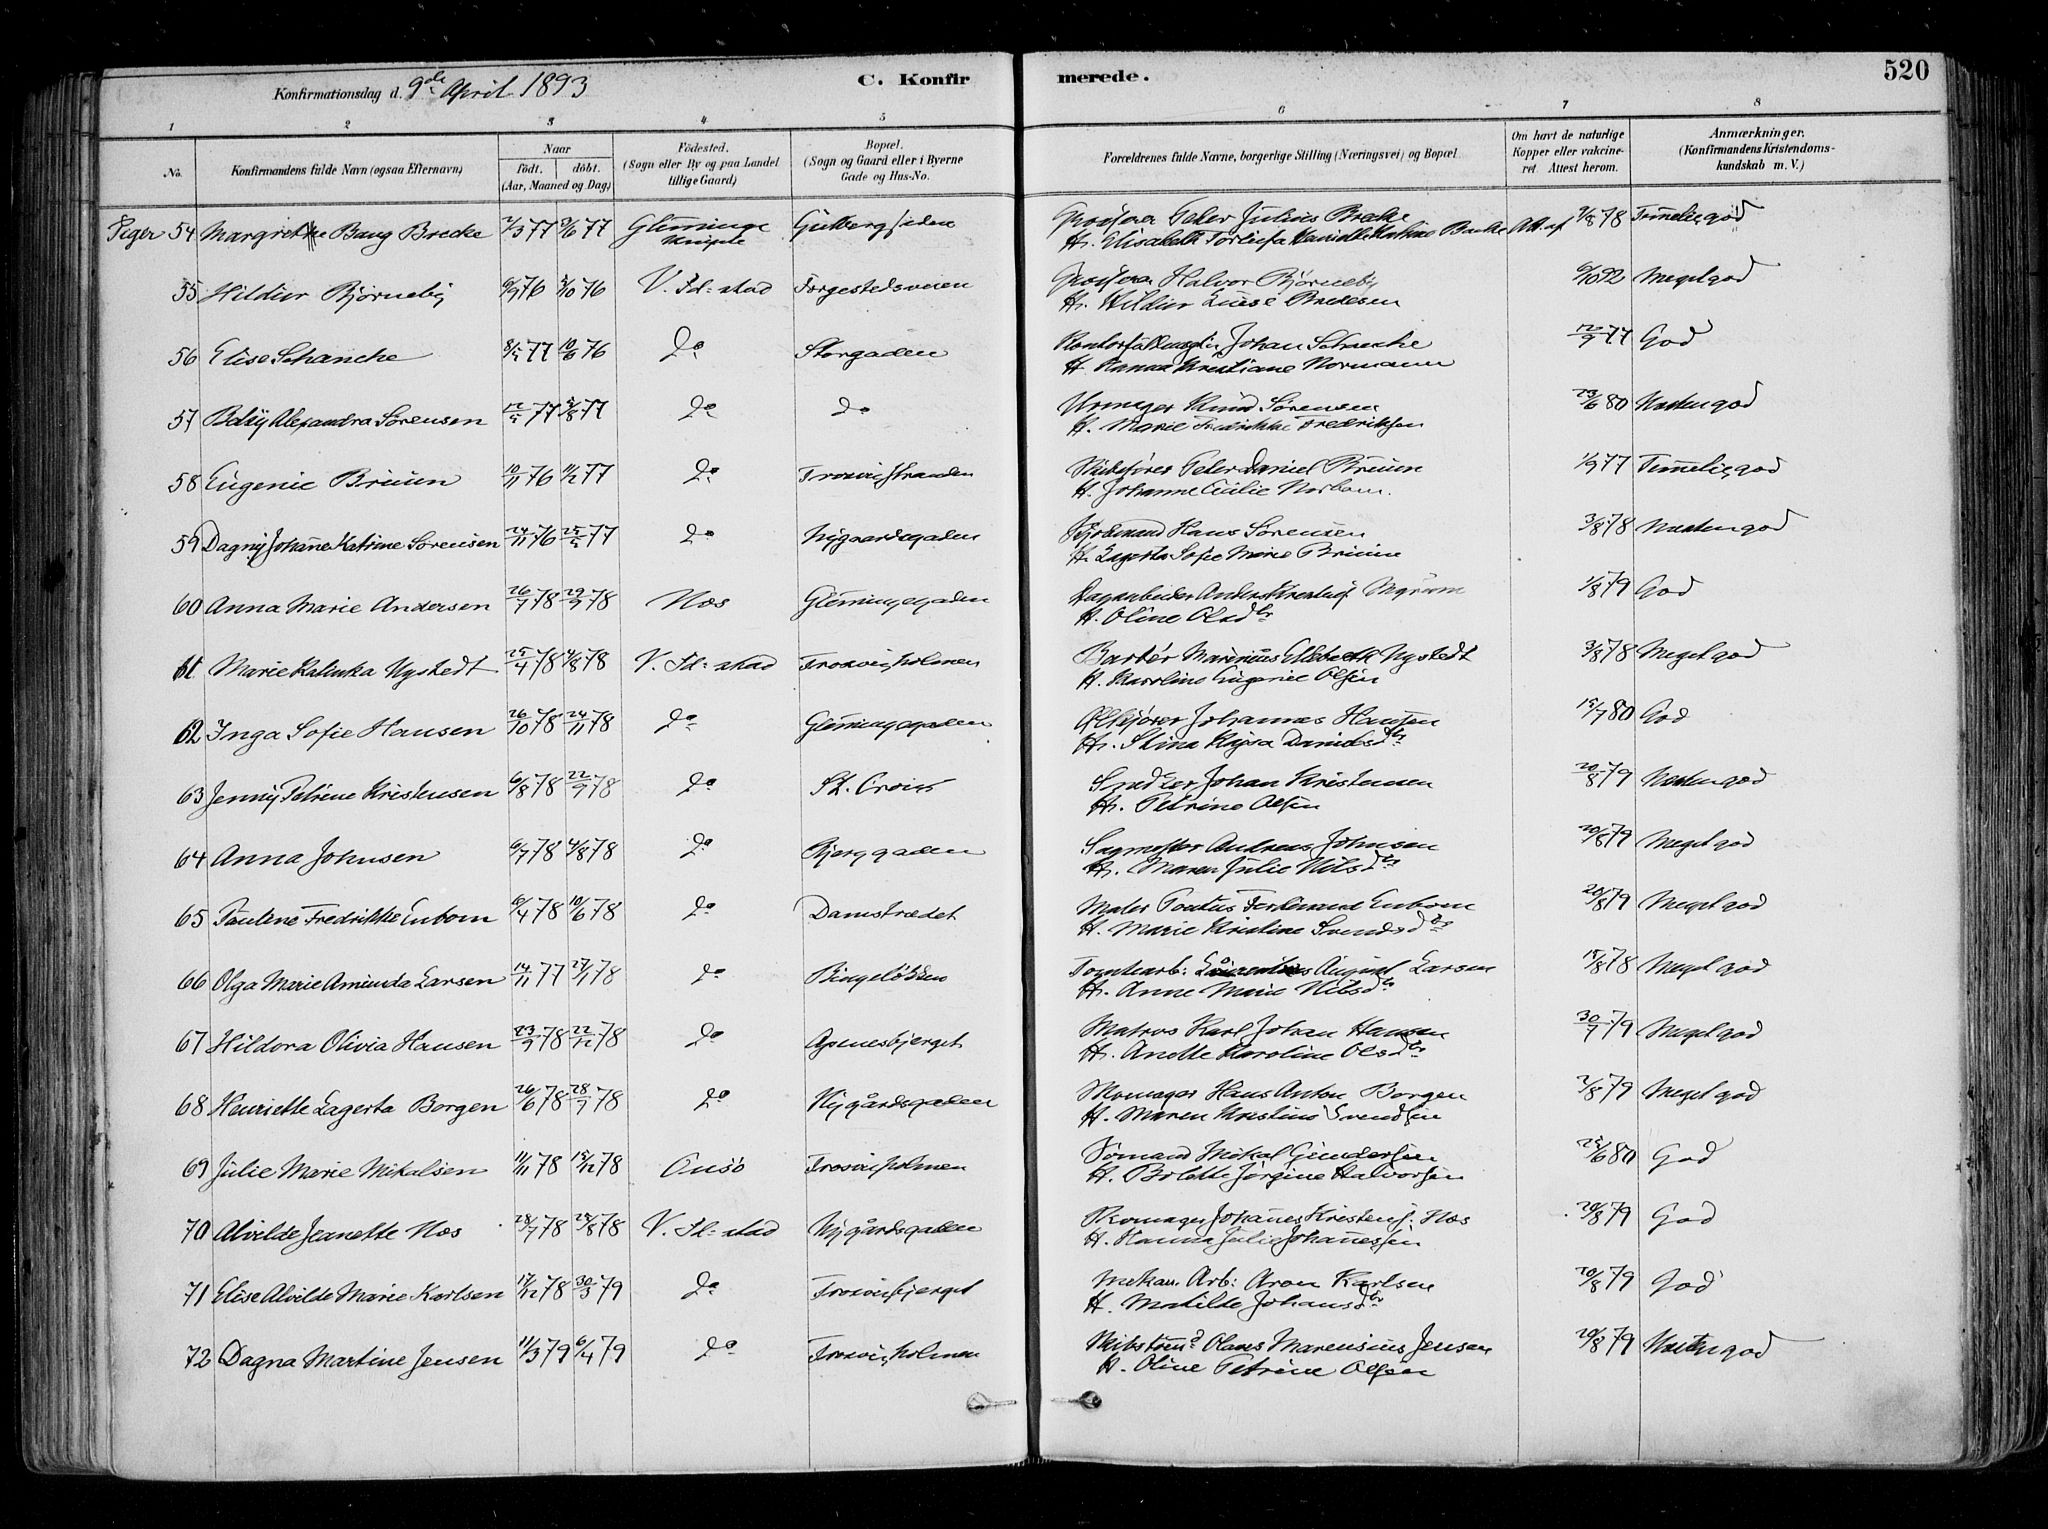 Konfirmationsdag d. 9de April 1893
C. Konfirmerede.
520
1 2 3 4 5 6 7 8
No.
Konfirmandens fulde Navn (ogsaa Efternavn)
Naar
født. døbt.
(Aar, Maaned og Dag)
Fødested.
(Sogn eller By og paa Landet
tillige Gaard)
Bopæl.
(Sogn og Gaard eller i Byerne
Gade og Hus-No.
Forældrenes fulde Navne, borgerlige Stilling (Næringsvei) og Bopæl.
Om havt de naturlige
Kopper eller vakcine-
ret. Attest herom.
Anmærkninger.
(Konfirmandens Kristendoms-
kundskab m. V.)
Piger 54 Margrethe Bang Brecke 77 77 Glemminge Peter Julius 78 Temmelig god
H. Elisabeth
55 Hildur Bjørneby 6/9 76 76 V. Fd:stad Torgestedsveien Halvor Bjørneby 6/10 92 Meget god
H. Hildur Bredesen
56 Elise Schancke 77 76 Do Storgaden Johan Schancke 12/9 77 God
H. Hanna Kristiane Normann
57 Betzy Alexandra Sørensen 12/5 77 5/8 77 Do do Urmager Knud Sørensen 23/6 80 Næsten god
H. Marie Fredrikke Fredriksen
58 Eugenie Bruun 10/11 76 11/2 77 Do Trosvigstranden Skibsfører Peter Daniel Bruun 1/9 77 Temmelig god
H. Johanne Cecilie Norbom.
59 Dagny Johanne Katrine Sørensen 24/11 76 25/5 77 Do Nygaardsgaden Hans Sørensen 3/8 78 Næsten god
H. Lagerta Sofie Marie Bruun
60 Anna Marie Andersen 26/7 78 29/9 78 Næs Glemmingegaden Dagarbeider Anders 1/8 79 God
H. Oline Olsdtr
61 Marie Kalinka Nystedt 25/4 78 4/8 78 V. Fd:stad Trosvigholmen Barbér Marinius Nystedt 3/8 78 Meget god
H. Karoline Eugenie Olsen
62 Inga Sofie Hansen 26/10 78 24/11 78 Do Glemmingegaden Ølkjører Johannes Hansen 15/7 80 God
H. Stina Kajsa Danielsdtr
63 Jenny Petrine Kristensen 6/8 78 22/9 78 Do St. Croix Snedker Johan Kristensen 20/8 79 Næsten god
H. Petrine Olsen
64 Anna Johnsen 6/7 78 4/8 78 Do Bjerggaden Sagmester Andreas Johnsen 20/8 79 Meget god
H. Maren Julie Nilsdtr
65 Pauline Fredrikke Enbom 6/4 78 10/6 78 Do Damstrædet Maler Pontus Ferdinand Enbom 20/8 79 Meget god
H. Marie Kristine Svendsdtr
66 Olga Marie Aminda Larsen 14/11 77 27/1 78 do Bingeløkken Tomtearb: August Larsen 15/8 78 Meget god
H. Anne Marie Nilsdtr
67 Hildora Olivia Hansen 23/9 78 22/12 78 Do Apenesbjerget Matros Karl Johan Hansen 30/7 79 Meget god
H. Anette Karoline Olsdtr
68 Henriette Lagerta Borgen 26/6 78 28/7 78 Do Nygårdsgaden Skomager Hans Anton Borgen 2/8 79 Meget god
H. Maren Kristine Svendsen
69 Julie Marie Mikalsen 11/11 78 15/12 78 Onsø Trosvigholmen Sømand Mikal Gundersen 25/6 80 God
H. Bolette Jørgine Halvorsen
70 Alvilde Jeanette Næs 28/7 78 25/8 78 V. Fd:stad Nygårdsgaden Skomager Johannes Kristens. Næs 20/8 79 God
H. Hanna Julie Johannessen
71 Elise Alvilde Marie Karlsen 17/12 78 30/3 79 Do Trosvigbjerget Mekan. Arb: Aron Karlsen 20/8 79 God
H. Matilde Johansdtr
72 Dagna Martine Jensen 11/3 79 6/4 79 Do Trosvigholmen Skibstømd Olaves Marensius Jensen 20/8 79 Næsten god
H. Oline Petrine Olsen